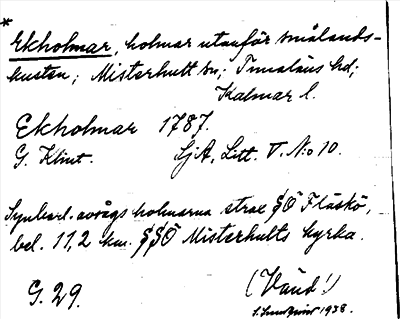 * Ekholmar, holmar utanför smålands-
kusten; Misterhult sn; Tunaläns hd;
Kalmar l.
Ekholmar 1787.
G. Klint. SjA, Litt. V. N:o 10.
Synbarl. avses holmarna strax SÖ Fläskö,
bel. 11,2 km. SSÖ Misterhults kyrka.
G. 29. (Vänd!)
1938.